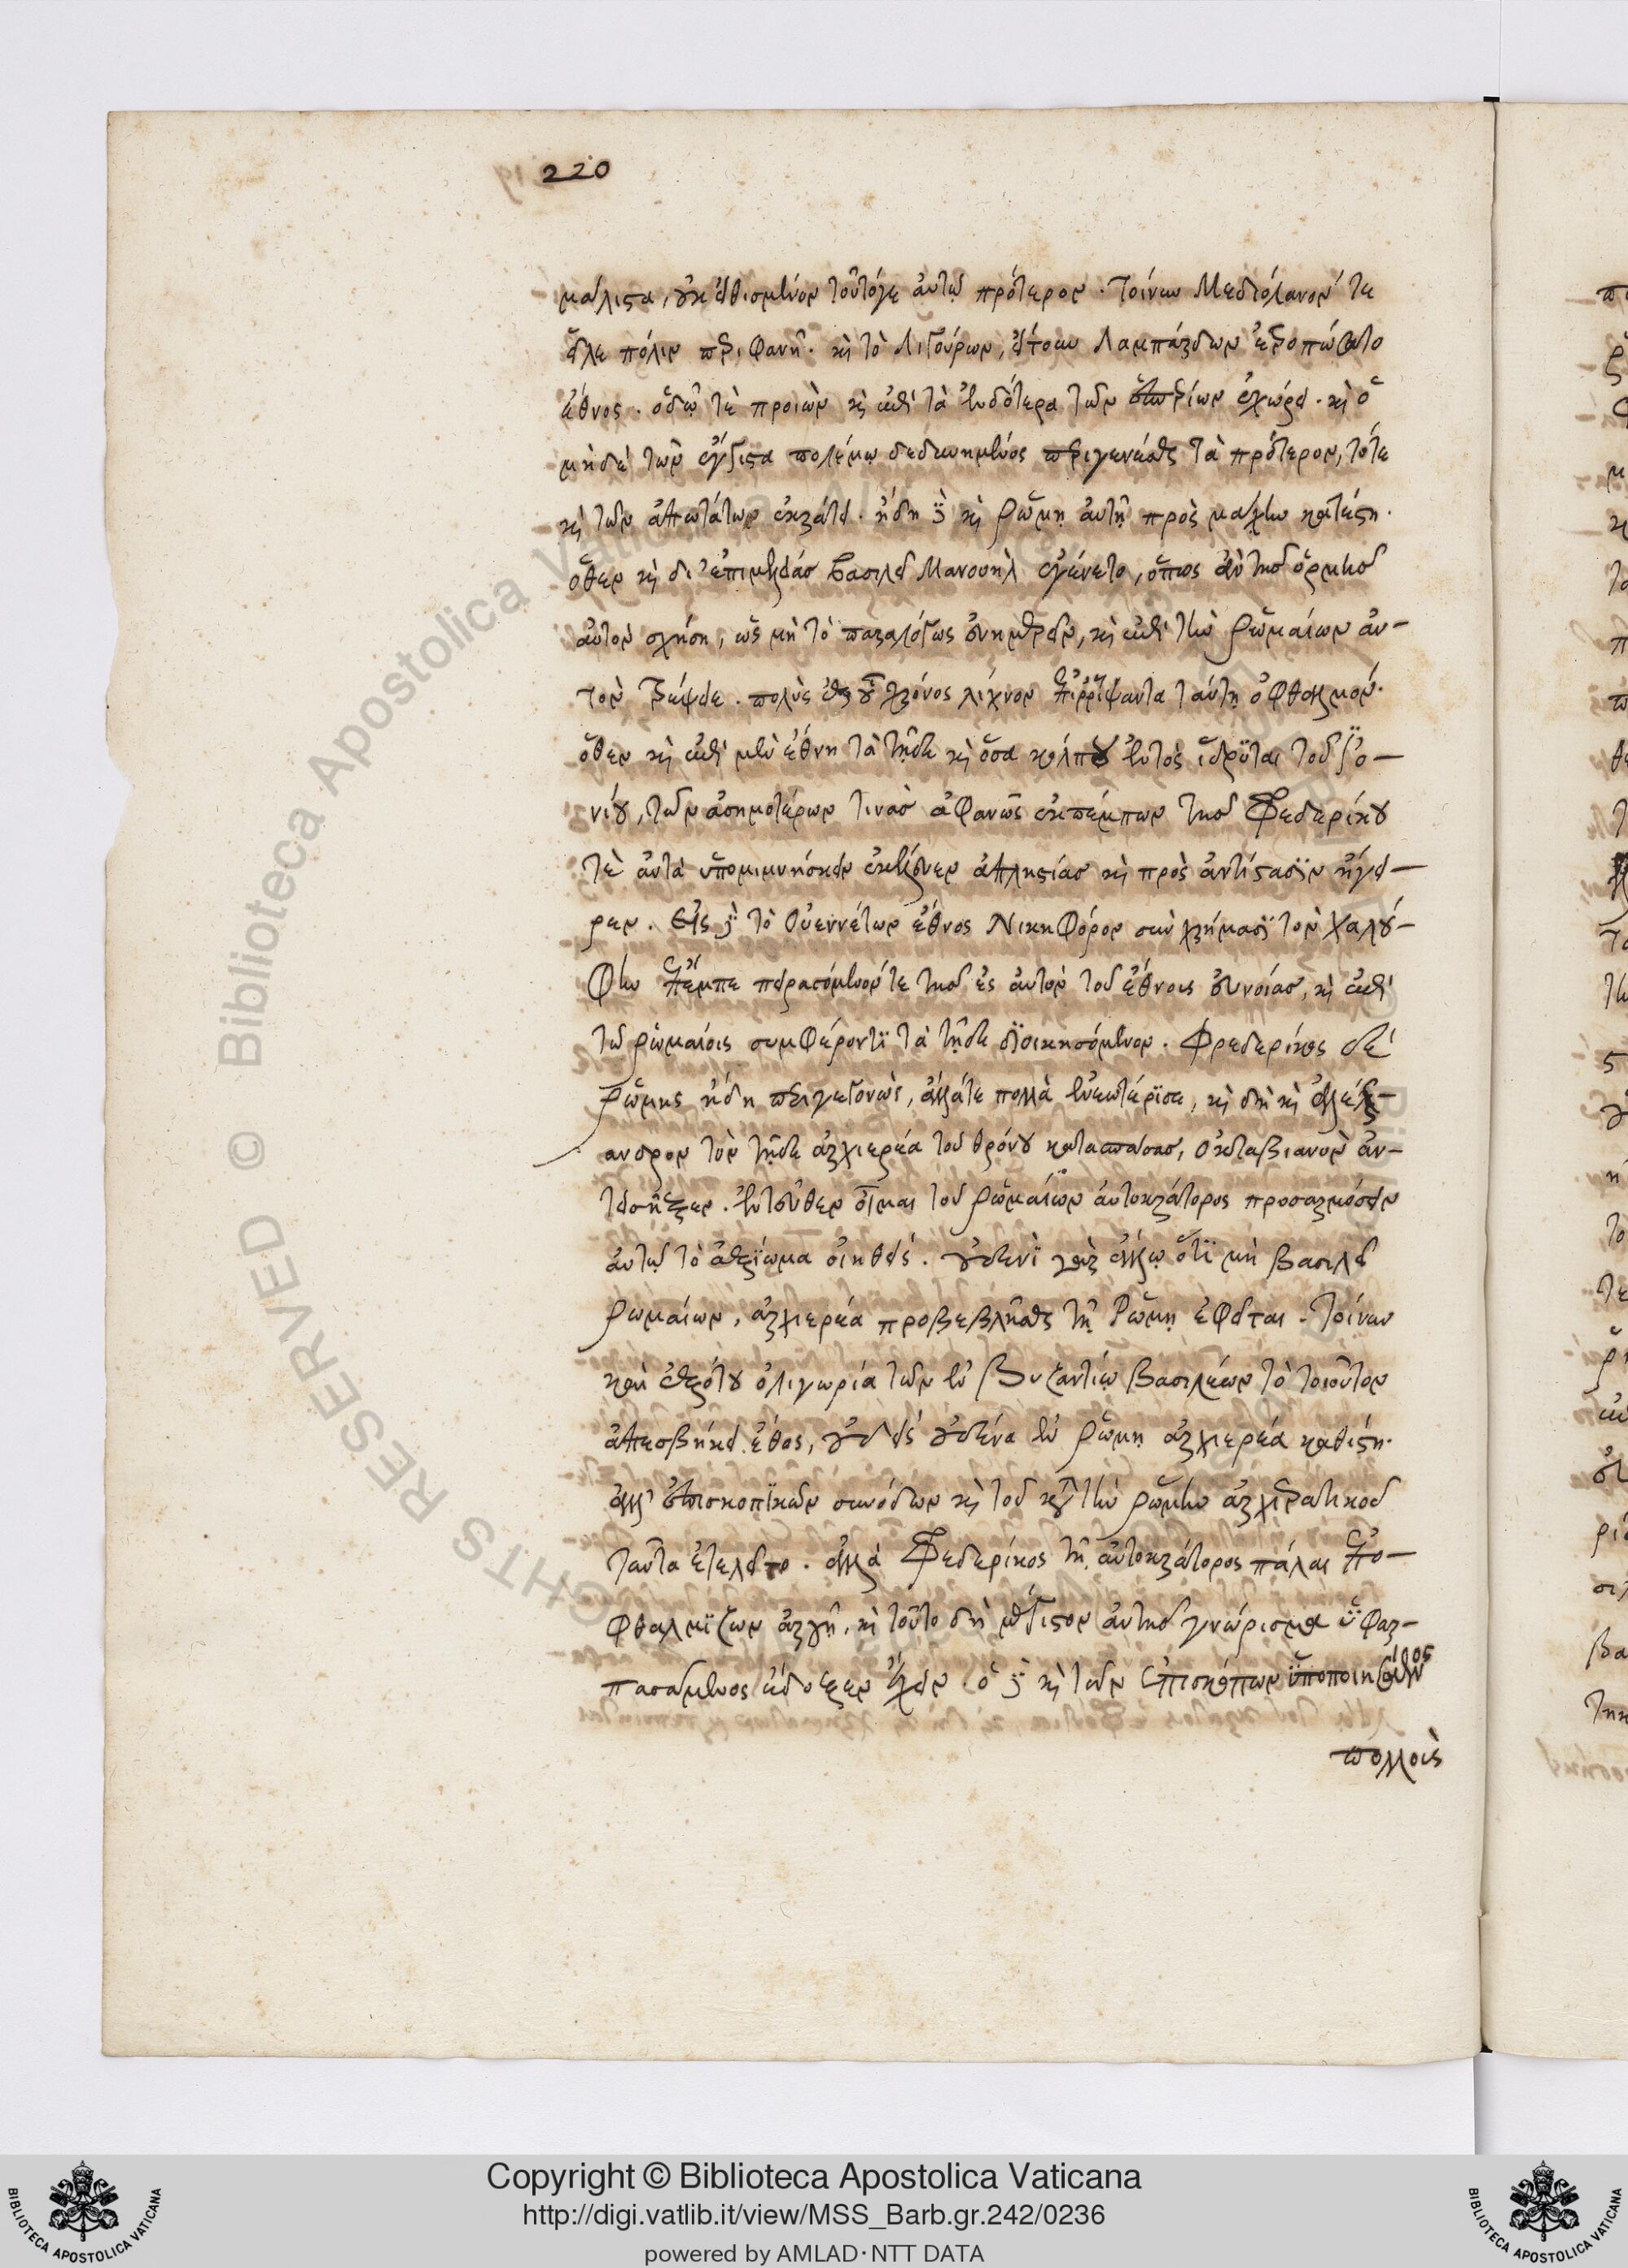 220
μάλιστα, οὐκ εἰθισμένον τοῦτόγε αὐτῷ πρότερον. τοίνυν Μεδιόλανόν τε
εἷλε πόλιν περιφανῆ. καὶ τὸ Λιγούρων, εἴτουν Λαμπάρδων ἐτροπώσατο
ἔθνος. ὁδῷ τὲ προιὼν καὶ ἐπὶ τὰ ἐνδότερα τῶν ἐχώρει. καὶ ὁ
μηδὲ τῶν ἔγγιστα πολέμῳ δεδυνημένος περιγενέσθαι τὰ πρότερον, τότε
καὶ τῶν ἀπωτάτων ἐκράτει. ἤδη δὲ καὶ ῥώμη αὐτῇ πρὸς μάχην κατέστη.
ὅθεν καὶ δι' ἐπιμελείας βασιλεῖ Μανουὴλ ἐγένετο, ὅπως ἂν τῆς ὁρμῆς
αὐτὸν σχήσῃ, ὡς μὴ τὸ παραλόγως εὐημερεῖν, καὶ ἐπὶ τὴν ῥωμαίων αὐ-
τὸν τρέψειε. πολὺς ἐκ τοῦ χρόνος λίχνον ἐπιρρίψαντα ταύτῃ ὀφθαλμόν.
ὅθεν καὶ ἐπὶ μὲν ἔθνη τὰ τῇδε καὶ ὅσα κόλπου ἐντὸς ἵδρυται τοῦ Ἰο-
νίου, τῶν ἀσημοτέρων τινὰς ἀφανῶς ἐκπέμπων τῆς Φρεδερίκου
τὲ αὐτὰ ὑπομιμνήσκειν ἐκέλευεν ἀπληστίας καὶ πρὸς ἀντίστασιν ἤγει-
ρεν. Εἰς δὲ τὸ Οὐεννέτων ἔθνος Νικηφόρον σὺν χρήμασι τὸν Χαλού-
φην ἔπεμπε πειρασόμενόν τε τῆς ἐς αὐτὸν τοῦ ἔθνους εὐνοίας, καὶ ἐπὶ
τῷ ῥωμαίοις συμφέροντι τὰ τῇδε διοικησόμενον. Φρεδερίκος δὲ
ῥώμης ἤδη περιγεγονὼς, ἄλλάτε πολλὰ ἐνεωτέρισε, καὶ δὴ καὶ ἀλέξ-
ανδρον τὸν τῇδε ἀρχιερέα τοῦ θρόνου καταπαύσας, ὀκταβιανὸν ἀν-
τεισῆξεν. ἐντεῦθεν οἶμαι τοῦ ῥωμαίων αὐτοκράτορος προσαρμόσειν
αὐτῷ τὸ ἀξίωμα οἰηθείς. οὐδενὶ γὰρ ἄλλῳ ὅτι μὴ βασιλεῖ
ῥωμαίων, ἀρχιερέα προβεβλῆσθαι τῇ Ῥώμῃ ἐφεῖται. τοίνυν
κἂν ἐξότου ὀλιγωρία τῶν ἐν Βυζαντίῳ βασιλέων τὸ τοιοῦτον
ἀπεσβήκει ἔθος, οὐδεὶς οὐδένα ἐν ῥώμῃ ἀρχιερέα καθίστη.
ἀλλ' ἐπισκοπικῶν συνόδων καὶ τοῦ κατὰ τὴν ῥώμην ἀρχιερατικοῦ
ταῦτα ἐτελεῖτο. ἀλλὰ Φρεδερίκος τῇ αὐτοκράτορος πάλαι ἐπο-
φθαλμίζων ἀρχῇ, καὶ τοῦτο δὴ μέγιστον αὐτῆς γνώρισμα ὑφαρ-
πασάμενος ἔδοξεν ἔχειν. ὁ δὲ καὶ τῶν ἐπισκόπων ὑποποιηθεὶς
πολλοὺς